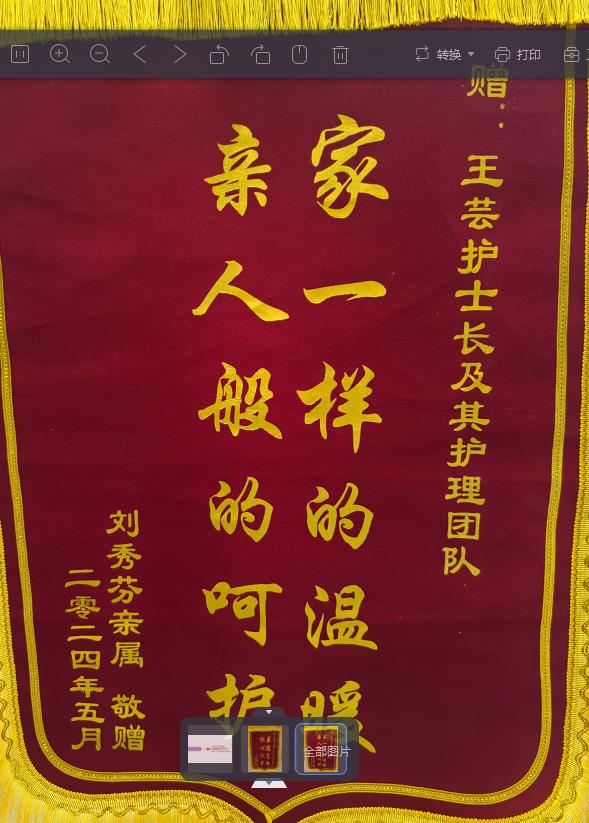 转换
打印
赠：
王芸护士长及其护理团队
家一样的温暖
亲人般的呵护
刘秀芬亲属 敬赠
二零二四年五月
全部图片